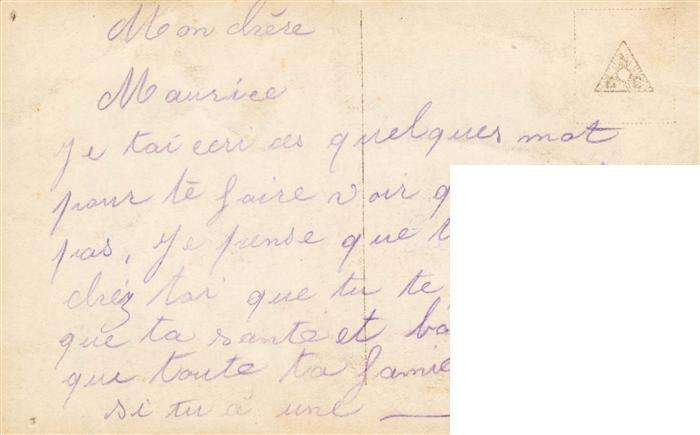 Mon chère
Maurice
Je tai ecri ces quelques mot
pour te faire voir q
pas, Je pense que t
chéz toi que tu te
que ta santé et bo
que toute ta famie
si tu a une